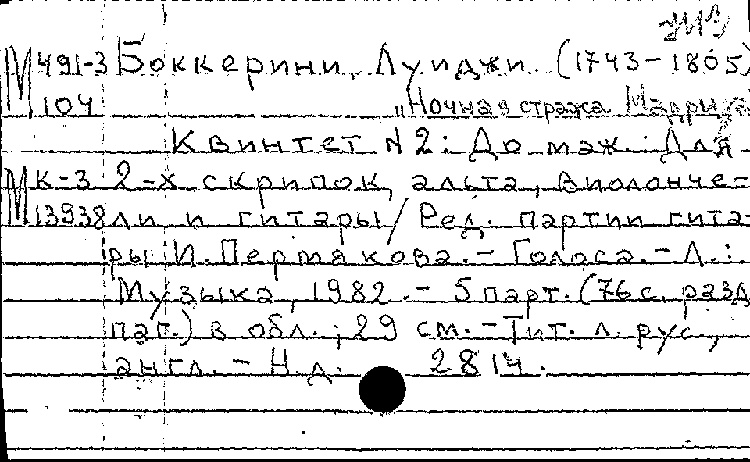 М 491-3 Боккерини, Луиджи (1743-1805)
104 "Ночная стража Мадрида
Квинтет N 2: До маж.: Для
М К-3 2-х скрипок, альта, виолонче-
13938 ли и гитары / Ред. партии гита-
ры И. Пермякова. - Голоса. - Л.:
Музыка, 1982. - 5 парт. (76 с. разд.
паг.) в обл.; 29 см. - Тит. л. рус.,
англ. - Н.д. 2814.